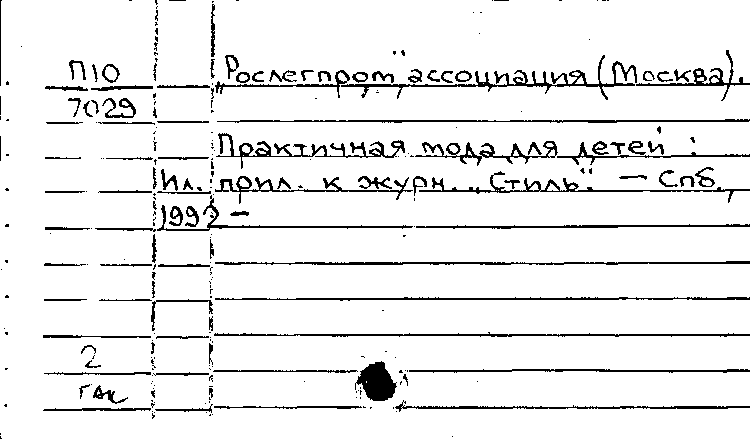 П10 „Рослегпром", ассоциация (Москва).
7029
Практичная мода для детей :
Ил. прил. к журн. „Стиль". — Спб.,
1992 —
2
ГАК